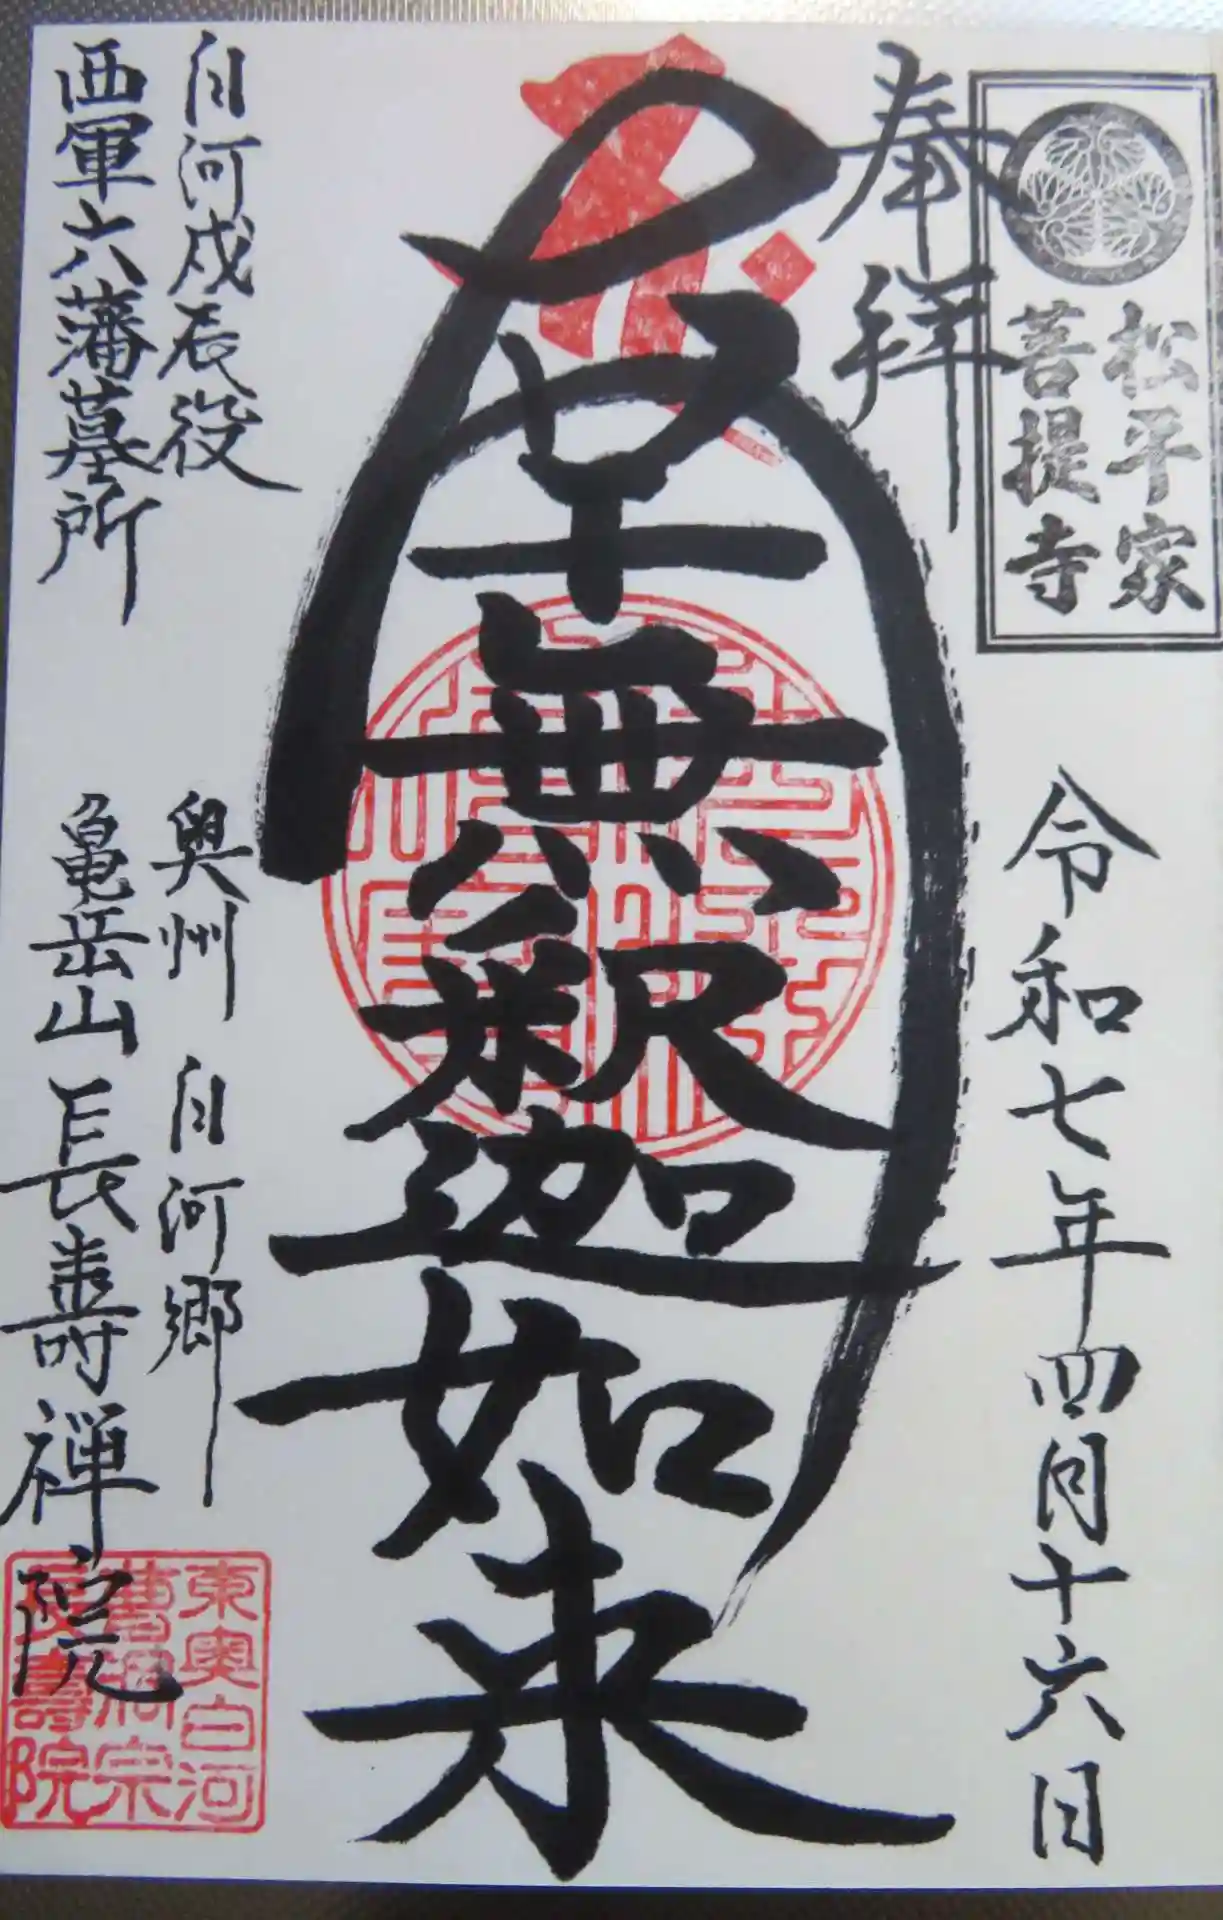 松平家
菩提寺
奉拝
令和七年四月十六日
南無釈迦如来
白河戊辰役
西軍六藩墓所
奥州 白河郷
亀岳山 長壽禅院
東奥白河
曹洞宗
長壽院